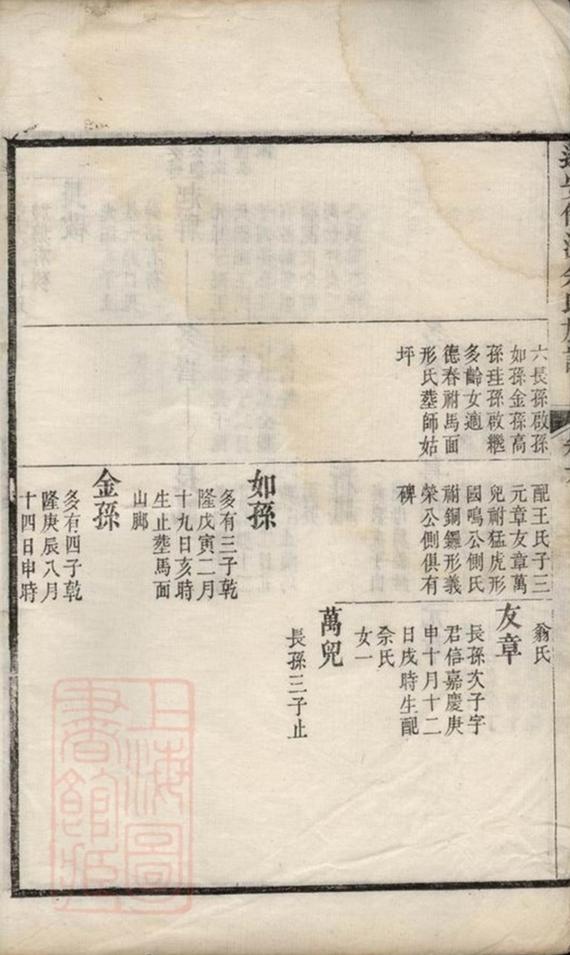 六長孫啟孫
如孫金孫高
孫珪孫啟繼
多齡女適
德春祔馬面
形氏塟師姑
坪
配王氏子三
元章友章萬
兒祔猛虎形
國鳴公側氏
祔銅鑼形義
榮公側俱有
碑
翁氏
友章
長孫次子字
君信嘉慶庚
申十月十二
日戌時生配
佘氏
女一
萬兒
長孫三子止
如孫
多有三子乾
隆戊寅二月
十九日亥時
生止塟馬面
山廊
金孫
多有四子乾
隆庚辰八月
十四日申時
上海圖
書館藏